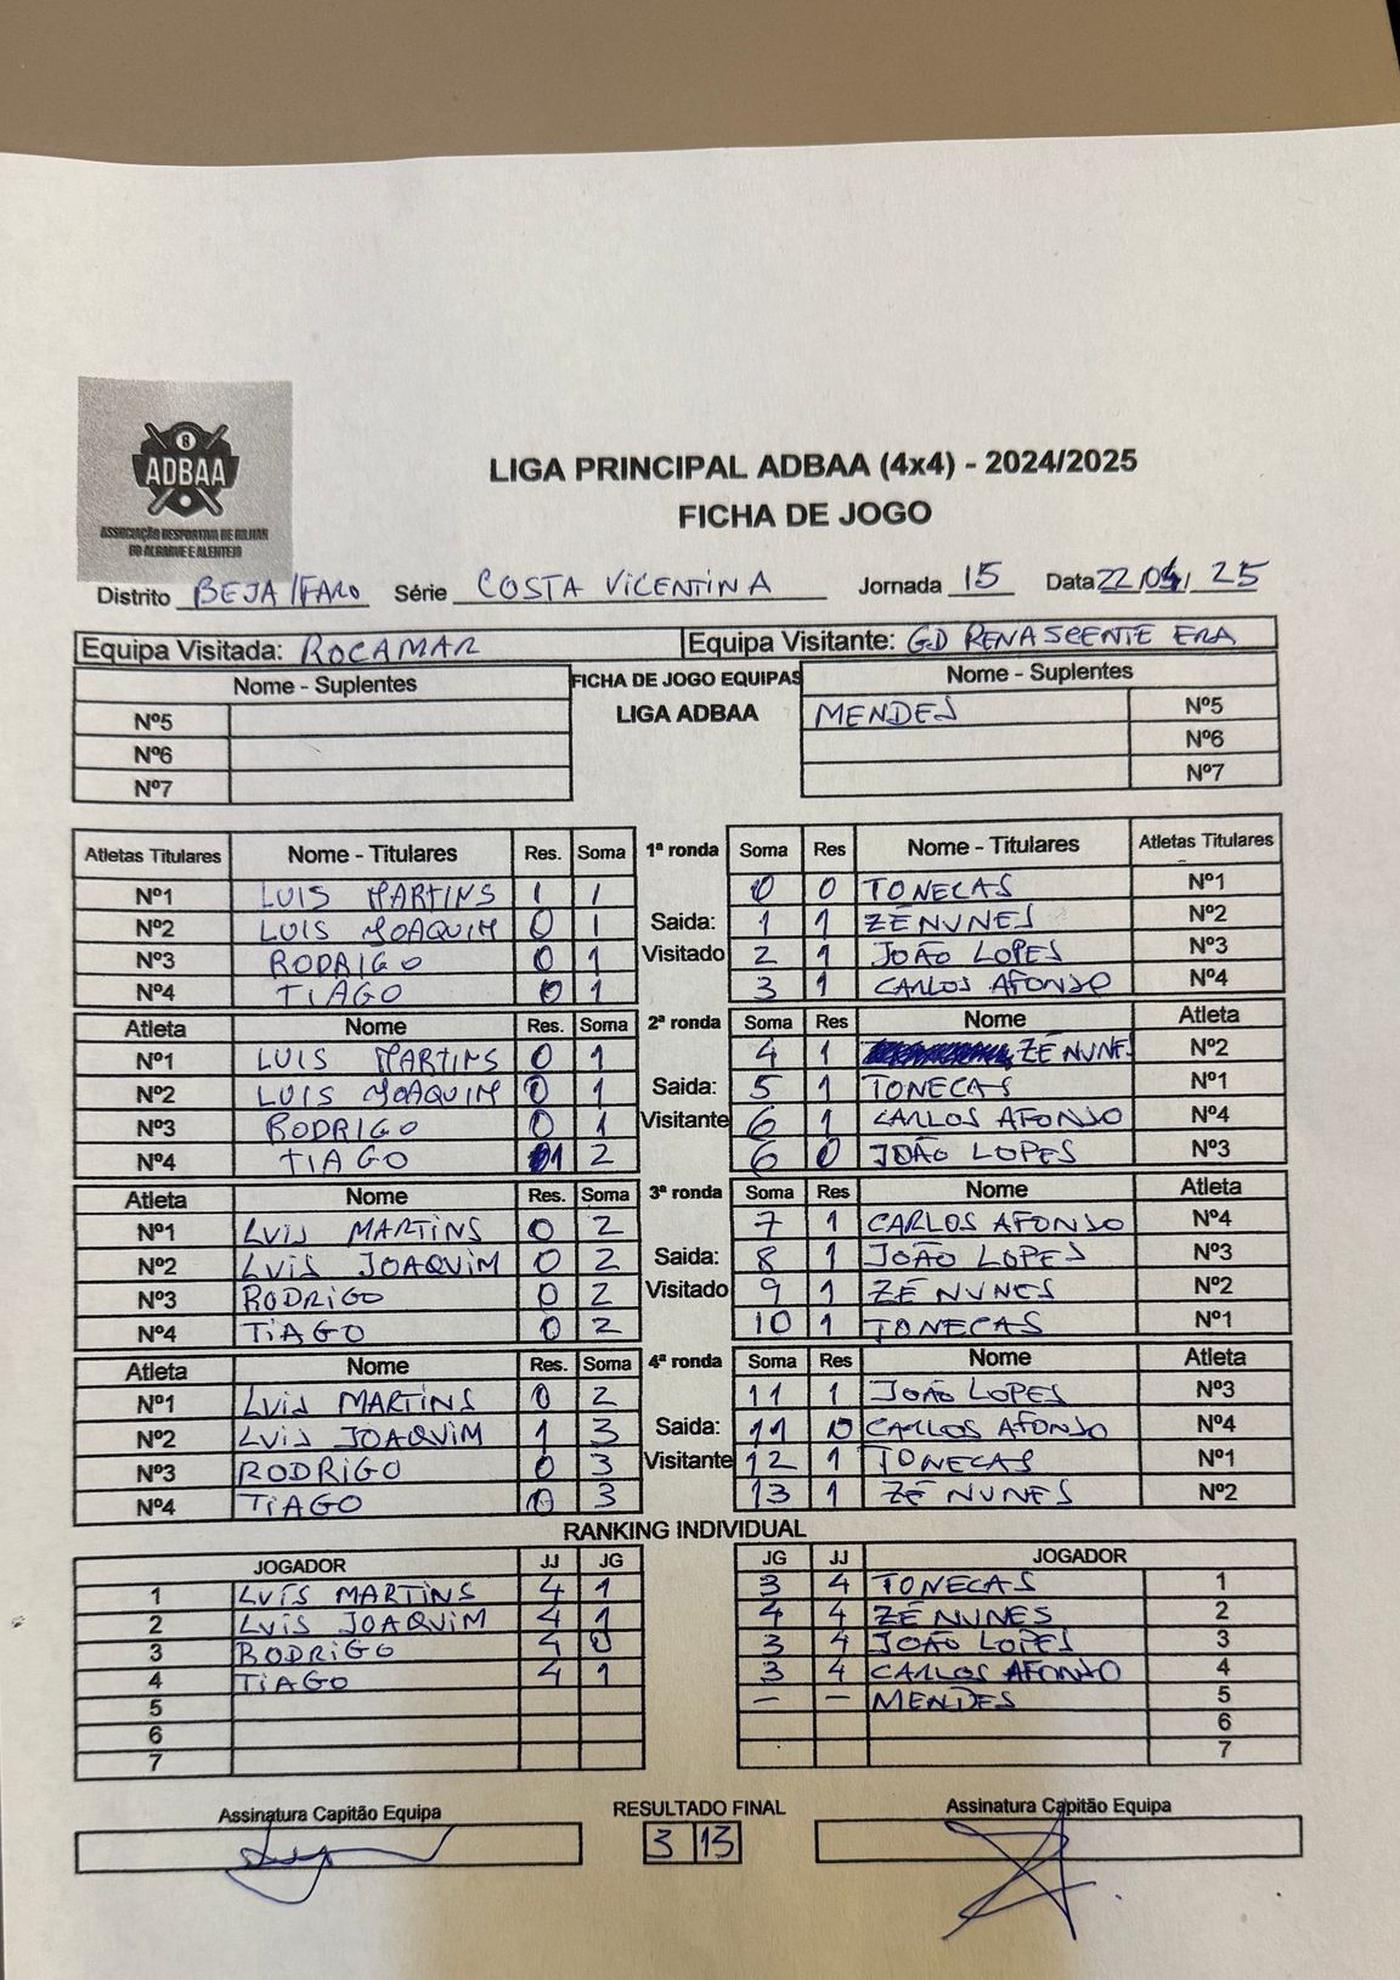 8
ADBAA
ASSOCIAÇÃO DESPORTIVA DE BILHAR
DO ALGARVE E ALENTEJO
LIGA PRINCIPAL ADBAA (4x4) - 2024/2025
FICHA DE JOGO
Distrito BEJA/FARO Série COSTA VICENTINA Jornada 15 Data 22, 25
Equipa Visitada: ROCAMAR Equipa Visitante: GD RENASCENTE ERA
Nome - Suplentes FICHA DE JOGO EQUIPAS Nome - Suplentes
Nº5 LIGA ADBAA MENDES Nº5
Nº6 Nº6
Nº7 Nº7
Atletas Titulares Nome - Titulares Res. Soma 1ª ronda Soma Res Nome - Titulares Atletas Titulares
Nº1 LUIS MARTINS 1 1 0 0 TONECAS Nº1
Nº2 LUIS JOAQUIM 0 1 Saida: 1 1 ZÉ NUNES Nº2
Nº3 RODRIGO 0 1 Visitado 2 1 JOÃO LOPES Nº3
Nº4 TIAGO 0 1 3 1 CARLOS AFONSO Nº4
Atleta Nome Res. Soma 2ª ronda Soma Res Nome Atleta
Nº1 LUIS MARTINS 0 1 4 1 ZÉ NUNES Nº2
Nº2 LUIS JOAQUIM 0 1 Saida: 5 1 TONECAS Nº1
Nº3 RODRIGO 0 1 Visitante 6 1 CARLOS AFONSO Nº4
Nº4 TIAGO 1 2 6 0 JOÃO LOPES Nº3
Atleta Nome Res. Soma 3ª ronda Soma Res Nome Atleta
Nº1 LUIS MARTINS 0 2 7 1 CARLOS AFONSO Nº4
Nº2 LUIS JOAQUIM 0 2 Saida: 8 1 JOÃO LOPES Nº3
Nº3 RODRIGO 0 2 Visitado 9 1 ZÉ NUNES Nº2
Nº4 TIAGO 0 2 10 1 TONECAS Nº1
Atleta Nome Res. Soma 4ª ronda Soma Res Nome Atleta
Nº1 LUIS MARTINS 0 2 11 1 JOÃO LOPES Nº3
Nº2 LUIS JOAQUIM 1 3 Saida: 11 0 CARLOS AFONSO Nº4
Nº3 RODRIGO 0 3 Visitante 12 1 TONECAS Nº1
Nº4 TIAGO 0 3 13 1 ZÉ NUNES Nº2
RANKING INDIVIDUAL
JOGADOR JJ JG JG JJ JOGADOR
1 LUÍS MARTINS 4 1 3 4 TONECAS 1
2 LUIS JOAQUIM 4 1 4 4 ZÉ NUNES 2
3 RODRIGO 4 0 3 4 JOÃO LOPES 3
4 TIAGO 4 1 3 4 CARLOS AFONSO 4
5 — — MENDES 5
6 6
7 7
Assinatura Capitão Equipa RESULTADO FINAL Assinatura Capitão Equipa
3 13